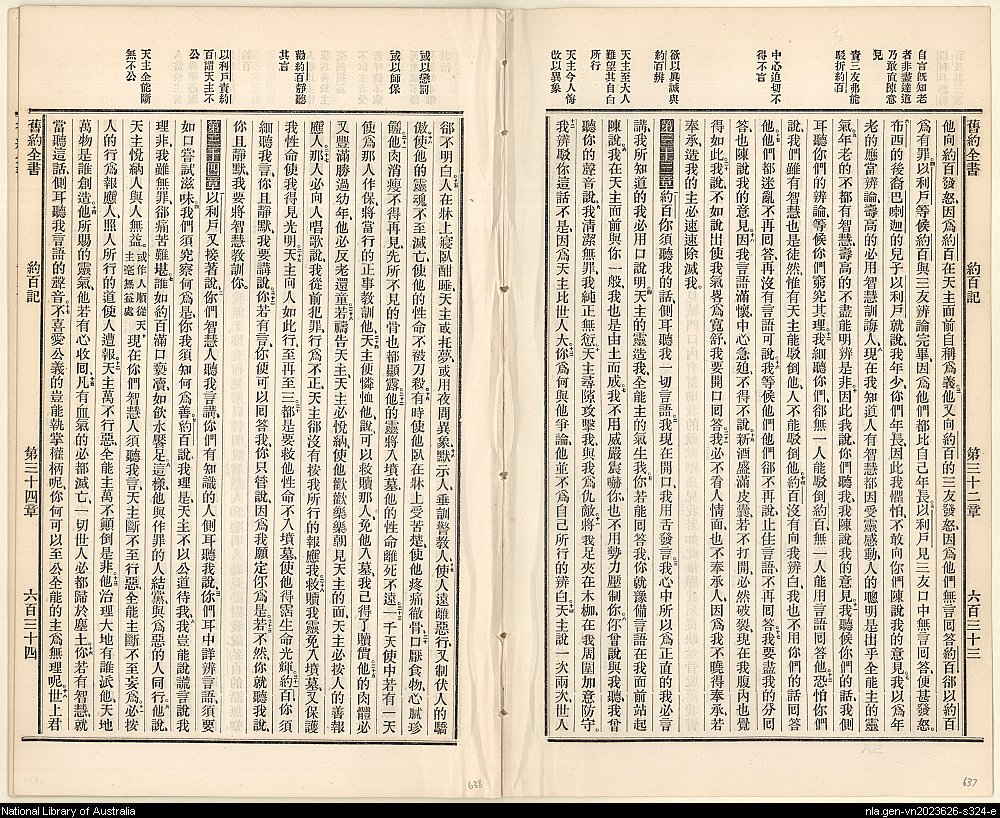 舊約全書
約百記
第三十二章
六百三十三
自言既知老
者非盡達道
乃敢直陳意
見
責三友弗能
駁折約百
中心迫切不
得不言
欲以眞誠與
約百辨
天主至大人
難望其自白
所行
天主令人悔
改以異象
他向約百發怒、因爲約百在天主面前自稱爲義、他又向約百的三友發怒、因爲他們無言回答約百、卻以約百
爲有罪、以利戶等候約百與三友辨論完畢、因爲他們都比自己年長、以利戶見三友口中無言回答、便甚發怒、
布西的後裔巴喇迦的兒子以利戶就說、我年少、你們年長、因此我懼怕、不敢向你們陳說我的意見、我以爲年
老的應當辨論、壽高的必用智慧訓誨人、現在我知道人有智慧、都因受靈感動、人的聰明是出乎全能主的靈
氣、年老的不都有智慧、壽高的不盡能明辨是非、因此我說、你們聽我、我陳說我的意見、我聽候你們的話、我側
耳聽你們的辨論、等候你們窮究其理、我細聽你們、卻無一人能駁倒約百、無一人能用言語回答他、恐怕你們
說、我們雖有智慧也是徒然、惟有天主能駁倒他、人不能駁倒他、約百沒有向我辨白、我也不用你們的話回答
他、他們都迷亂不再回答、再沒有言語可說、我等候他們、他們卻不再說、止住言語、不再回答、我要盡我的分回
答、也陳說我的意見、因我言語滿懷、中心急迫、不得不說、新酒盛滿皮囊、若不打開、必然破裂、現在我腹內也覺
得如此、我說、不如說出、使我氣畧爲寬舒、我要開口回答、我必不看人情面、也不奉承人、因爲我不曉得奉承、若
奉承、造我的主必速速除滅我、
第三十三章約百、你須聽我的話、側耳聽我一切言語、我現在開口、我用舌發言、我心中所以爲正直的、我必言
講、我所知道的、我必用口說明、天主的靈造我、全能主的氣生我、你若能回答我、你就豫備言語、在我面前站起
陳說、我在天主面前與你一般、我也是由土而成、我不用威嚴震嚇你、也不用勢力壓制你、你曾說與我聽、我曾
聽你的聲音說、我清潔無罪、我純正無愆、天主尋隙攻擊我、與我爲仇敵、將我足夾在木枷、在我周圍加意防守、
我辨駁你這話不是、因爲天主比世人大、你爲何與他爭論、他並不爲自己所行的辨白、天主說一次兩次、世人
637
或以懲罰
或以師保
勸約百靜聽
其言
以利戶責約
百謂天主不
公
天主全能斷
無不公
卻不明白、人在牀上寢臥酣睡、天主或托夢、或用夜間異象、默示人、垂訓警教人、使人遠離惡行、又制伏人的驕
傲、使他的靈魂不至滅亡、使他的性命不被刀殺、有時使他臥在牀上受苦楚、使他疼痛徹骨、口厭食物、心膩珍
饈、他肉消瘦不得再見、先所不見的骨也都顯露、他的靈將入墳墓、他的性命離死不遠、一千天使中若有一天
使爲那人作保、將當行的正事教訓他、天主便憐恤他、說、可以救贖那人、免他入墓、我已得了贖價、他的肉體必
又豐滿、勝過幼年、他必反老還童、若禱告天主、天主必悅納、使他歡歡樂樂朝見天主的面、天主必按人的善報
應人、那人必向人唱歌說、我從前犯罪、行爲不正、天主卻沒有按我所行的報應我、救贖我靈免入墳墓、又保護
我性命使我得見光明、天主向人如此行、至再至三、都是要救他性命不入墳墓、使他得霑生命光輝、約百你須
細聽我言、你且靜默、我要講說、你若有言、你便可以回答我、你只管說、因爲我願定你爲是、若不然、你就聽我說、
你且靜默、我要將智慧教訓你、
第三十四章以利戶又接著說、你們智慧人聽我言講、你們有知識的人側耳聽我說、你們耳中詳辨言語、須要
如口嘗試滋味、我們須究察何爲是、你我須知何爲善、約百說、我理是、天主不以公道待我、我豈能說謊言、說我
理非、我雖無罪、卻痛苦難堪、誰如約百滿口褻瀆、如飲水饜足、這樣、他與作罪的人結黨、與爲惡的人同行、他說、
天主悅納人、與人無益、或作人順從天主毫無益處現在你們智慧人須聽我言、天主斷不至行惡、全能主斷不至妄爲、必按
人的行爲報應人、照人所行的道使人遭報、天主萬不行惡、全能主萬不顛倒是非、他治理大地、有誰派他、天地
萬物是誰創造、他所賜的靈氣、他若有心收回、凡有血氣的必都滅亡、一切世人必都歸於塵土、你若有智慧、就
當聽這話、側耳聽我言語的聲音、不喜愛公義的、豈能執掌權柄呢、你何可以至公全能的主爲無理呢、世上君
舊約全書
約百記
第三十四章
六百三十四
638
National Library of Australia
nla.gen-vn2023626-s324-e